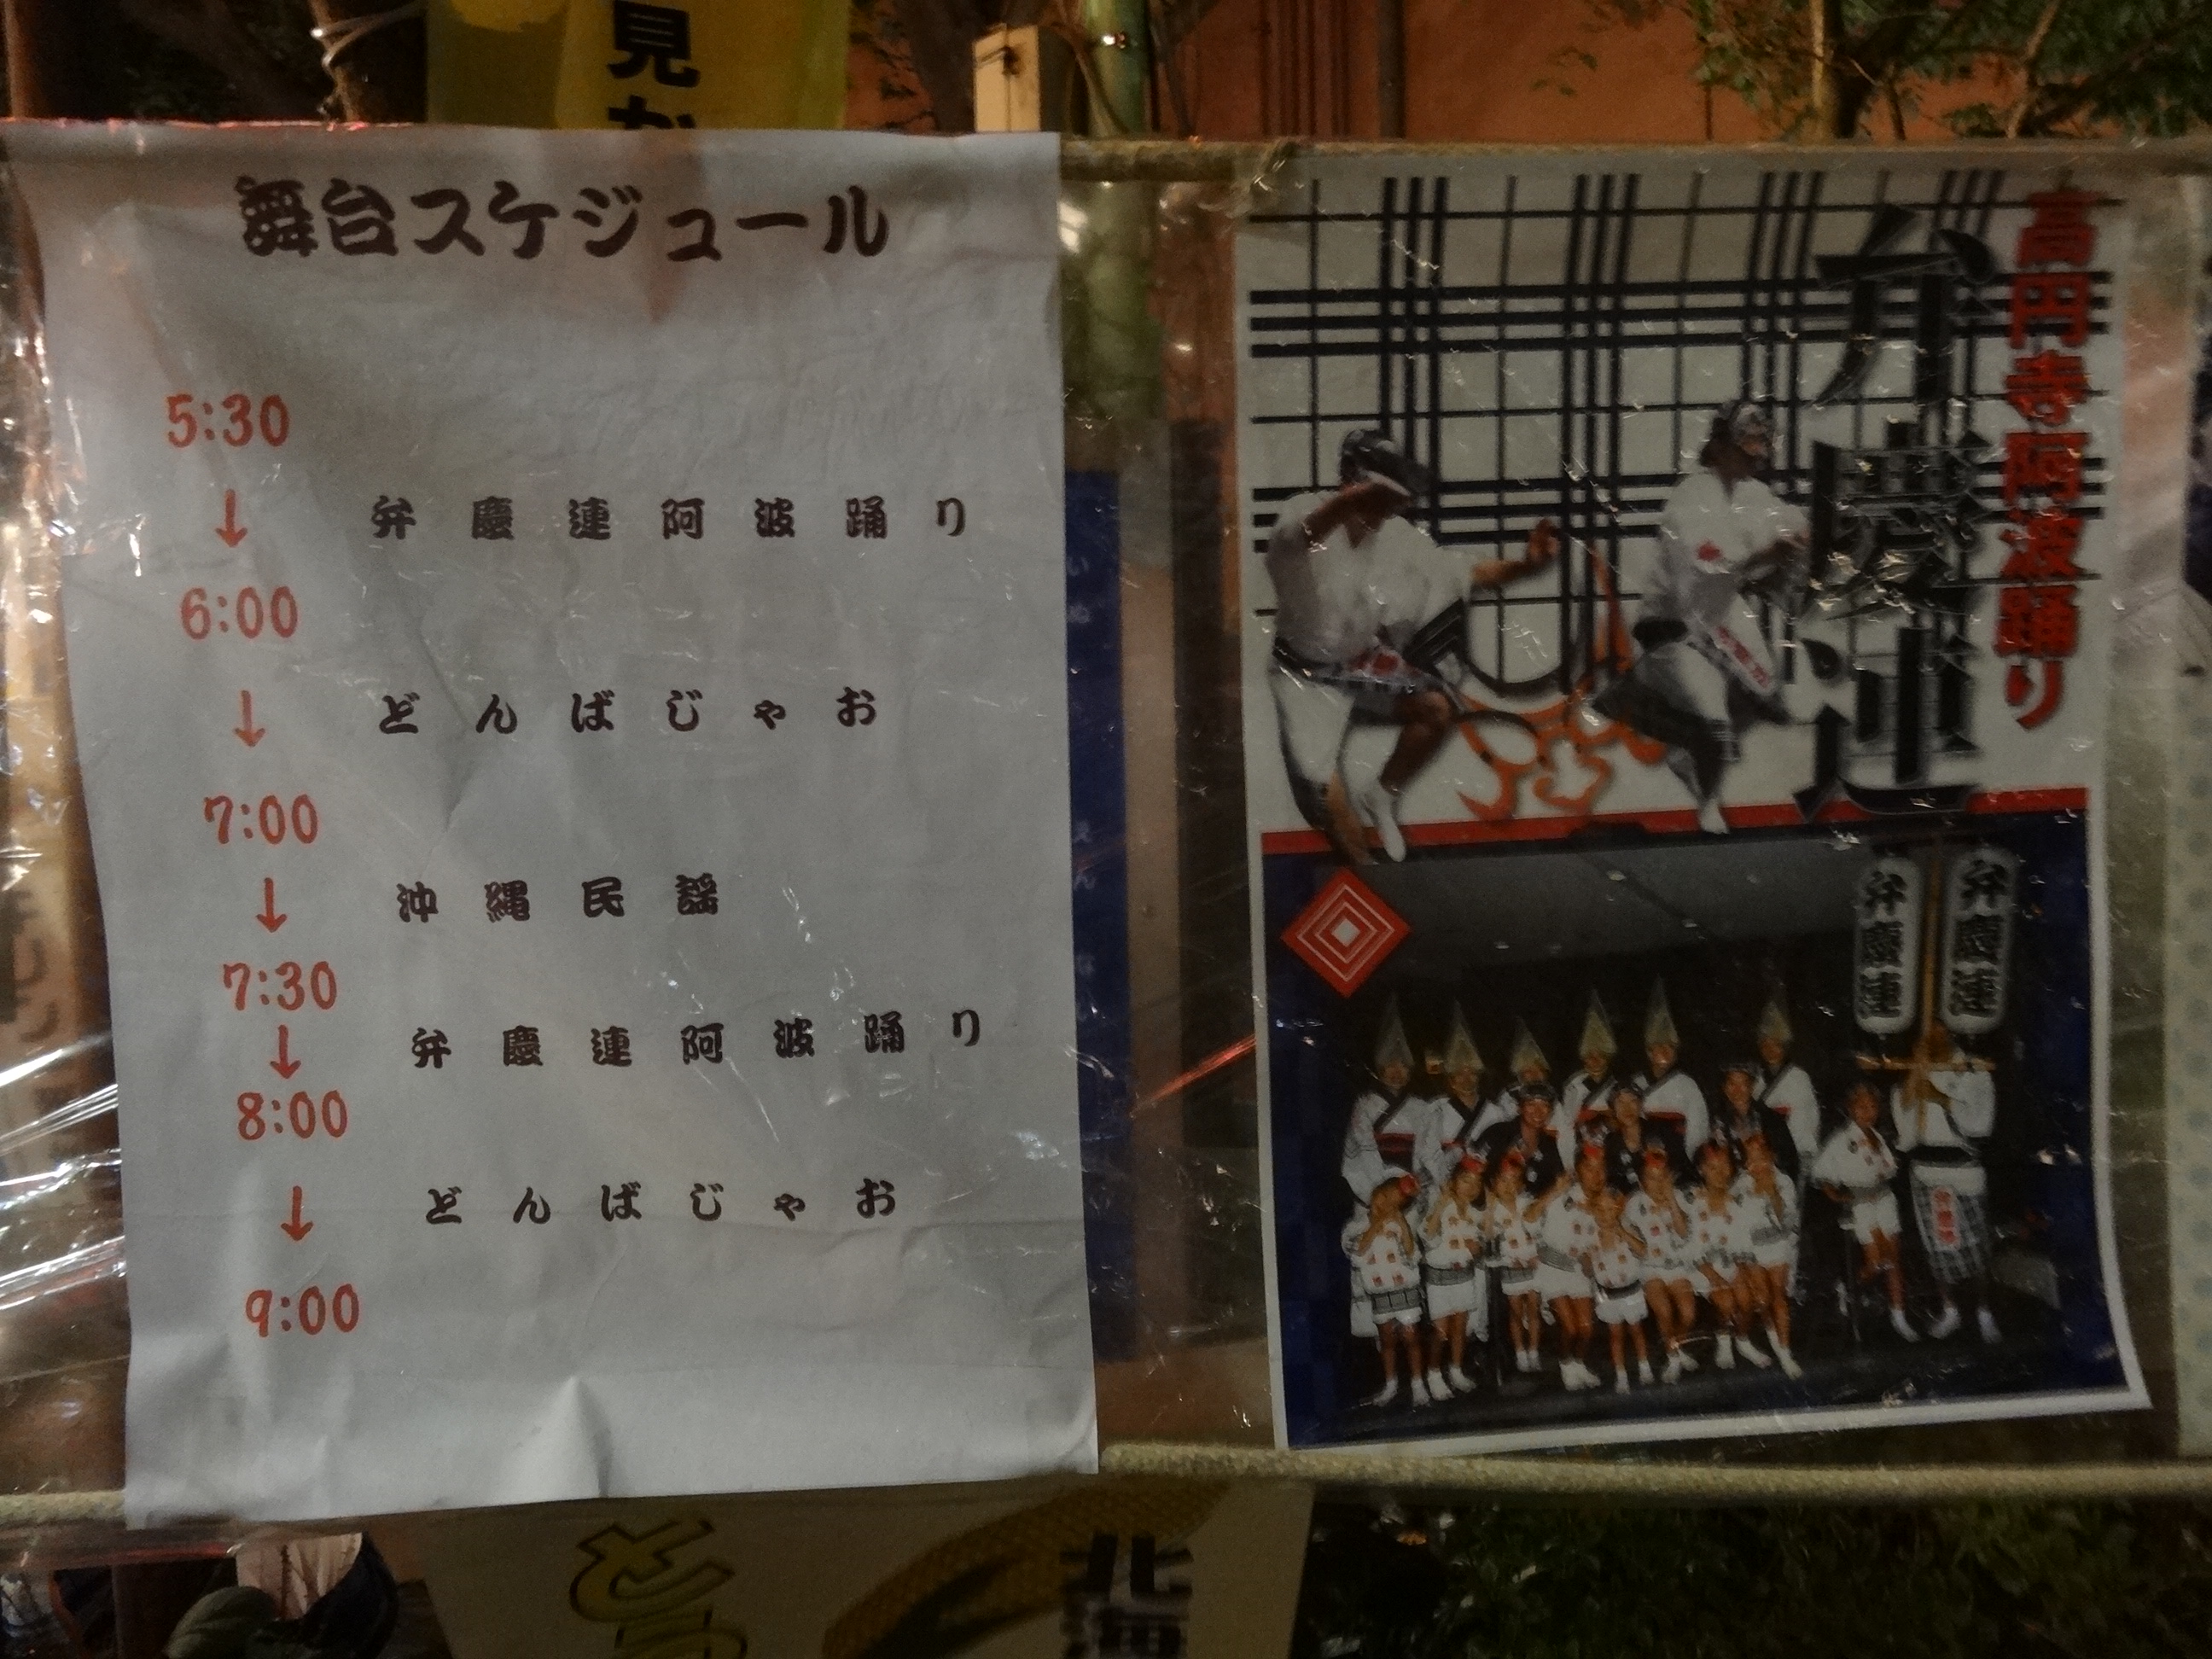 見
舞台スケジュール
5:30
↓ 弁慶連阿波踊り
6:00
↓ どんばじゃお
7:00
↓ 沖縄民謡
7:30
↓ 弁慶連阿波踊り
8:00
↓ どんばじゃお
9:00
高円寺阿波踊り
弁慶連
弁慶連
弁慶連
北海